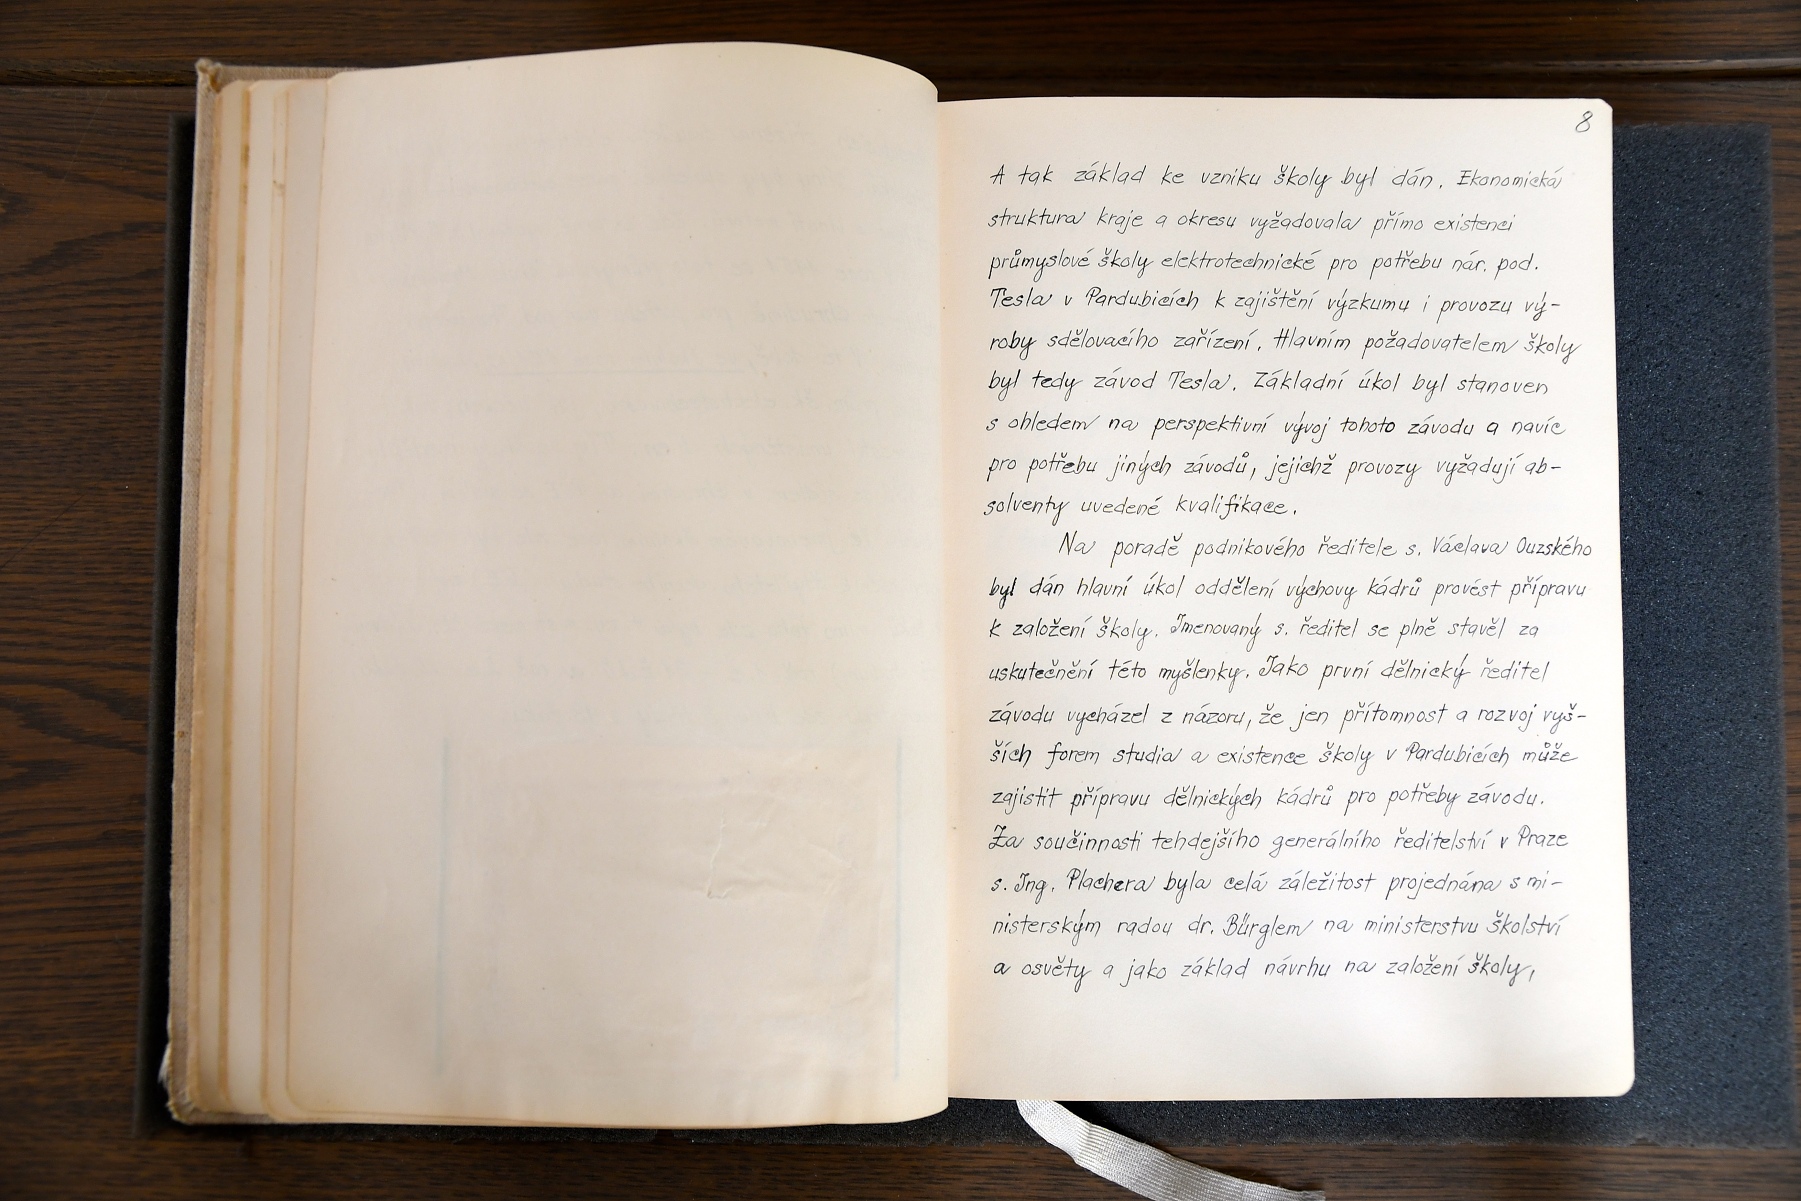 8
A tak základ ke vzniku školy byl dán. Ekonomická
struktura kraje a okresu vyžadovala přímo existenci
průmyslové školy elektrotechnické pro potřebu nár. pod.
Tesla v Pardubicích k zajištění výzkumu i provozu vý-
roby sdělovacího zařízení. Hlavním požadovatelem školy
byl tedy závod Tesla. Základní úkol byl stanoven
s ohledem na perspektivní vývoj tohoto závodu a navíc
pro potřebu jiných závodů, jejichž provozy vyžadují ab-
solventy uvedené kvalifikace.
Na poradě podnikového ředitele s. Václava Ouzského
byl dán hlavní úkol oddělení výchovy kádrů provést přípravu
k založení školy. Jmenovaný s. ředitel se plně stavěl za
uskutečnění této myšlenky. Jako první dělnický ředitel
závodu vycházel z názoru, že jen přítomnost a rozvoj vyš-
ších forem studia a existence školy v Pardubicích může
zajistit přípravu dělnických kádrů pro potřeby závodu.
Za součinnosti tehdejšího generálního ředitelství v Praze
s. Ing. Plachera byla celá záležitost projednána s mi-
nisterským radou dr. Bürglem na ministerstvu školství
a osvěty a jako základ návrhu na založení školy,